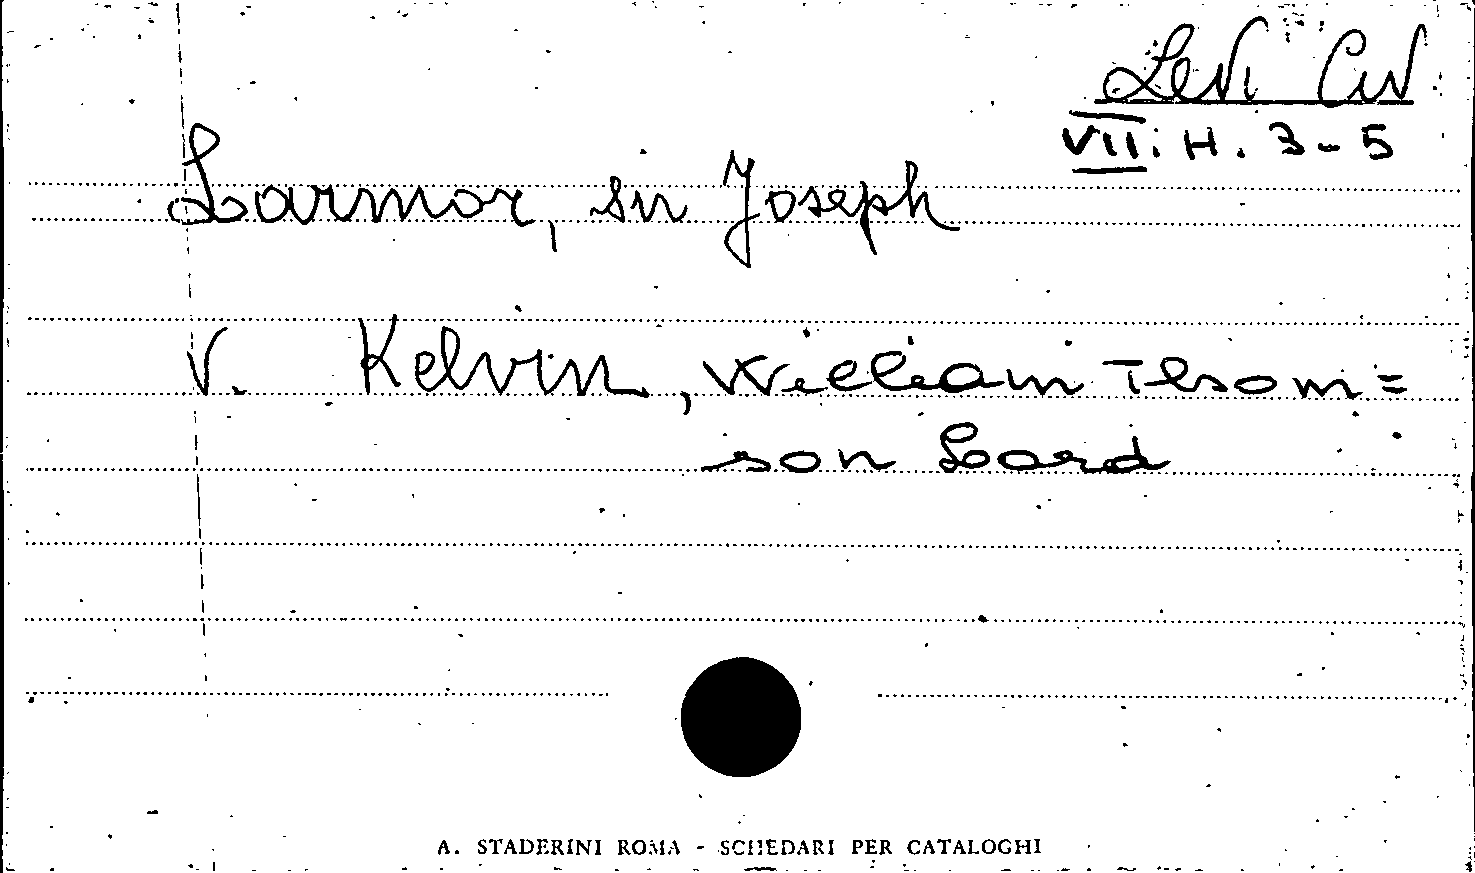 Levi Civ
VII. H. 3-5
Larmor, sir Joseph
V. Kelvin, William Thom=
son Lord
A. STADERINI ROMA - SCHEDARI PER CATALOGHI